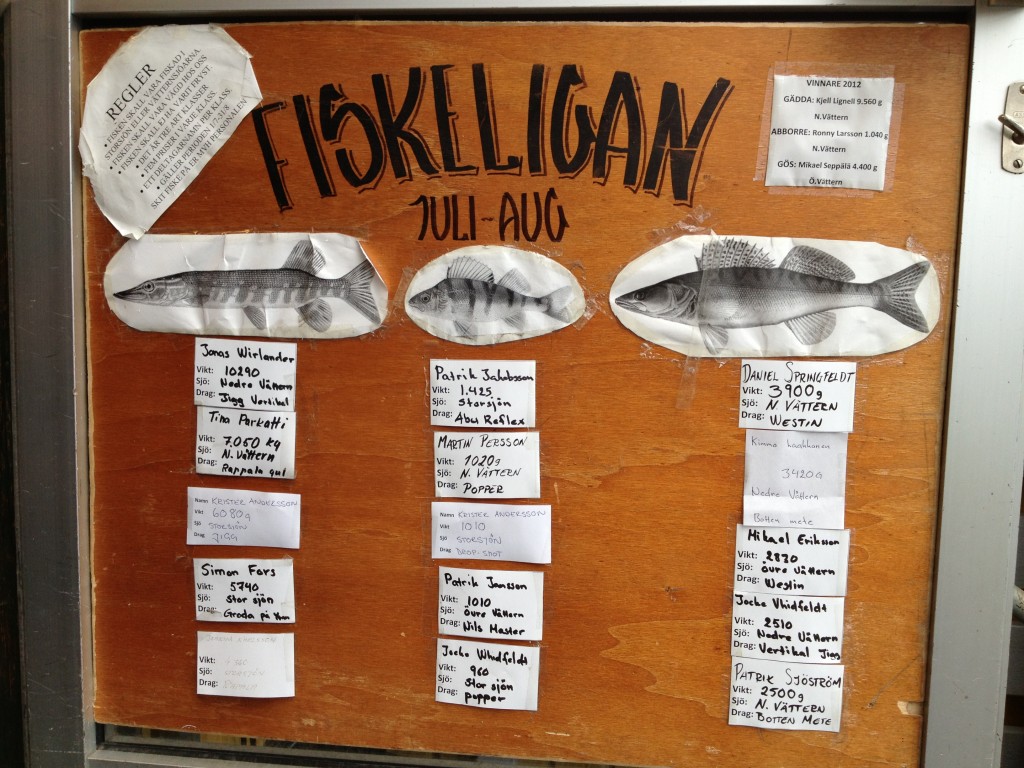 REGLER
• FISKEN SKALL VARA FISKAD I
STORSJÖN ELLER VÄTTERNSJÖARNA.
• FISKEN SKALL VARA VÄGD HOS OSS
• FISKEN SKALL EJ HA VARIT FRYST.
• DET ÄR TRE ART KLASSER
• FEM PRISER I VARJE KLASS
ETT DELTAGARNAMN PER KLASS
• GÄLLER PERIODEN 1/7-31/8
SKIT FISKE PÅ ER MVH PERSONALEN
FISKELIGAN
JULI-AUG
VINNARE 2012
GÄDDA: Kjell Lignell 9.560 g
N.Vättern
ABBORRE: Ronny Larsson 1.040 g
N.Vättern
GÖS: Mikael Seppälä 4.400 g
Ö.Vättern
Jonas Wirlander
Vikt: 10290
Sjö: Nedre Vättern
Drag: Jigg Vertikal
Tina Parkatti
Vikt: 7.060 kg
Sjö: N. Vättern
Drag: Rappala gul
Namn KRISTER ANDERSSON
Vikt 6080g
Sjö STORSJÖN
Drag JIGG
Simon Fors
Vikt: 5740
Sjö: Stor sjön
Drag: Groda på
Vikt:
Sjö: STORSJÖN
Drag:
Patrik Jakobsson
Vikt: 1.425
Sjö: Storsjön
Drag: Abu Reflex
MARTIN PERSSON
Vikt: 1020g
Sjö: N. VÄTTERN
Drag: POPPER
Namn KRISTER ANDERSSON
Vikt 1010
Sjö STORSJÖN
Drag DROP-SHOT
Patrik Jansson
Vikt: 1010
Sjö: Övre Vättern
Drag: Nils Master
Jocke Whidfeldt
Vikt: 960
Sjö: Stor sjön
Drag: popper
DANIEL SPRINGFELDT
Vikt: 3900g
Sjö: N. VÄTTERN
Drag: WESTIN
Kimmo
3420g
Nedre Vättern
Botten mete
Mikael Eriksson
Vikt: 2830
Sjö: Övre Vättern
Drag: Westin
Jocke Whidfeldt
Vikt: 2510
Sjö: Nedre Vättern
Drag: Vertikal Jigg
PATRIK SJÖSTRÖM
Vikt: 2500g
Sjö: N. VÄTTERN
Drag: BOTTEN METE